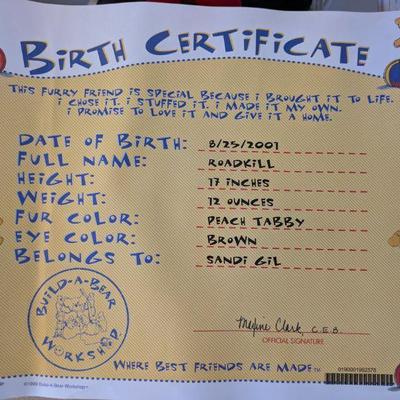 BIRTH CERTIFICATE
THIS FURRY FRIEND IS SPECIAL BECAUSE I BROUGHT IT TO LIFE.
I CHOSE IT. I STUFFED IT. I MADE IT MY OWN.
I PROMISE TO LOVE IT AND GIVE IT A HOME.
DATE OF BIRTH: 8/25/2001
FULL NAME: ROADKILL
HEIGHT: 17 INCHES
WEIGHT: 12 OUNCES
FUR COLOR: PEACH TABBY
EYE COLOR: BROWN
BELONGS TO: SANDI GIL
BUILD-A-BEAR WORKSHOP
Maxine Clark, C.E.B.
OFFICIAL SIGNATURE
WHERE BEST FRIENDS ARE MADE™
©1999 Build-A-Bear Workshop™